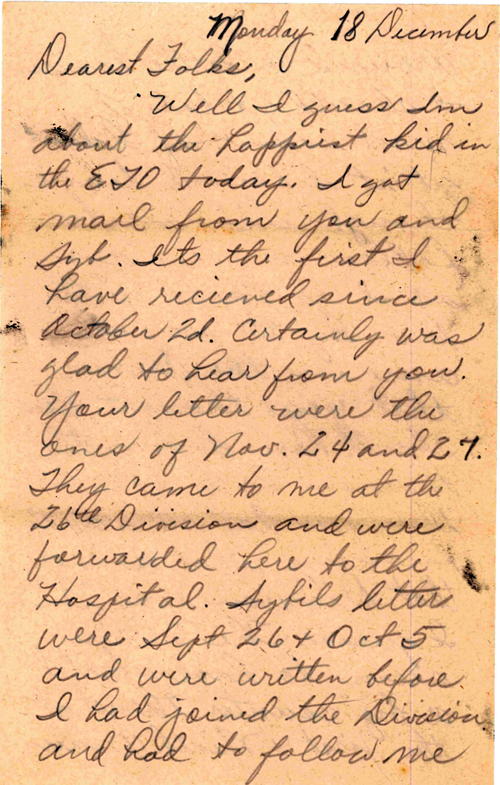 Monday 18 December
Dearest Folks,
Well I guess Im
about the happiest kid in
the ETO today. I got
mail from you and
Syb. Its the first I
have recieved since
October 2d. Certainly was
glad to hear from you.
Your letter were the
ones of Nov. 24 and 27.
They came to me at the
26th Division and were
forwarded here to the
Hospital. Sybils letter
were Sept 26 + Oct 5
and were written before
I had joined the Division
and had to follow me